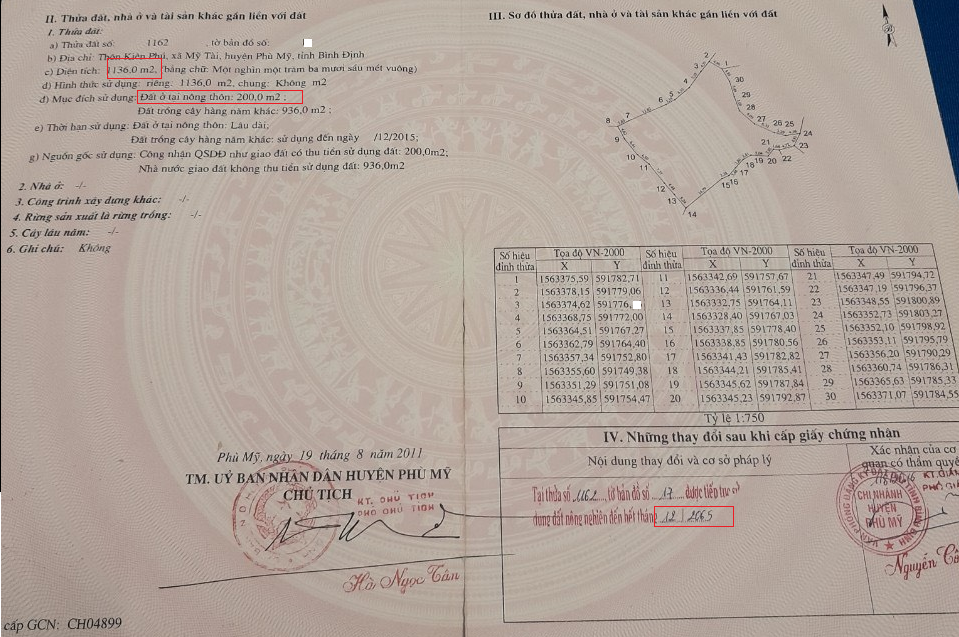 II. Thửa đất, nhà ở và tài sản khác gắn liền với đất
1. Thửa đất:
a) Thửa đất số: 1162 , tờ bản đồ số:
b) Địa chỉ: Thôn Kiên Phú, xã Mỹ Tài, huyện Phù Mỹ, tỉnh Bình Định
c) Diện tích: 1136,0 m2, (bằng chữ: Một nghìn một trăm ba mươi sáu mét vuông)
d) Hình thức sử dụng: riêng: 1136,0 m2, chung: Không m2
đ) Mục đích sử dụng: Đất ở tại nông thôn: 200,0 m2 ;
Đất trồng cây hàng năm khác: 936,0 m2 ;
e) Thời hạn sử dụng: Đất ở tại nông thôn: Lâu dài;
Đất trồng cây hàng năm khác: sử dụng đến ngày /12/2015;
g) Nguồn gốc sử dụng: Công nhận QSDĐ như giao đất có thu tiền sử dụng đất: 200,0m2;
Nhà nước giao đất không thu tiền sử dụng đất: 936,0m2
2. Nhà ở: -/-
3. Công trình xây dựng khác: -/-
4. Rừng sản xuất là rừng trồng: -/-
5. Cây lâu năm: -/-
6. Ghi chú: Không
Phù Mỹ, ngày 19 tháng 8 năm 2011
TM. UỶ BAN NHÂN DÂN HUYỆN PHÙ MỸ
CHỦ TỊCH
KT. CHỦ TỊCH
PHÓ CHỦ TỊCH
Hà Ngọc Tân
cấp GCN: CH04899
III. Sơ đồ thửa đất, nhà ở và tài sản khác gắn liền với đất
2
3 1
4 30
5 29
6 28
7 27 26 25
8 24
9 21 23
10 22
11 18 19 20
12 17
13 15 16
14
Số hiệu đỉnh thửa Tọa độ VN-2000 Số hiệu đỉnh thửa Tọa độ VN-2000 Số hiệu đỉnh thửa Tọa độ VN-2000
X Y X Y X Y
1 1563375,59 591782,71 11 1563342,69 591757,67 21 1563347,49 591794,72
2 1563378,15 591779,06 12 1563336,44 591761,59 22 1563347,19 591796,37
3 1563374,62 591776, 13 1563332,75 591764,11 23 1563348,55 591800,89
4 1563368,75 591772,00 14 1563328,40 591767,03 24 1563352,73 591803,27
5 1563364,51 591767,27 15 1563337,85 591778,40 25 1563352,10 591798,92
6 1563362,79 591764,40 16 1563338,85 591780,56 26 1563353,11 591795,79
7 1563357,34 591752,80 17 1563341,43 591782,82 27 1563356,20 591790,29
8 1563355,60 591749,38 18 1563344,21 591785,41 28 1563360,74 591786,31
9 1563351,29 591751,08 19 1563345,62 591787,84 29 1563365,63 591785,33
10 1563345,85 591754,47 20 1563345,23 591792,87 30 1563371,07 591784,55
Tỷ lệ 1:750
IV. Những thay đổi sau khi cấp giấy chứng nhận
Nội dung thay đổi và cơ sở pháp lý
Xác nhận của cơ
quan có thẩm quyề
Tại thửa số 1162 tờ bản đồ số 17 được tiếp tục sử
dụng đất nông nghiệp đến hết tháng 12 / 2065
KT.GIÁM
PHÓ GIÁ
CHI NHÁNH
HUYỆN
PHÙ MỸ
Nguyễn Cô